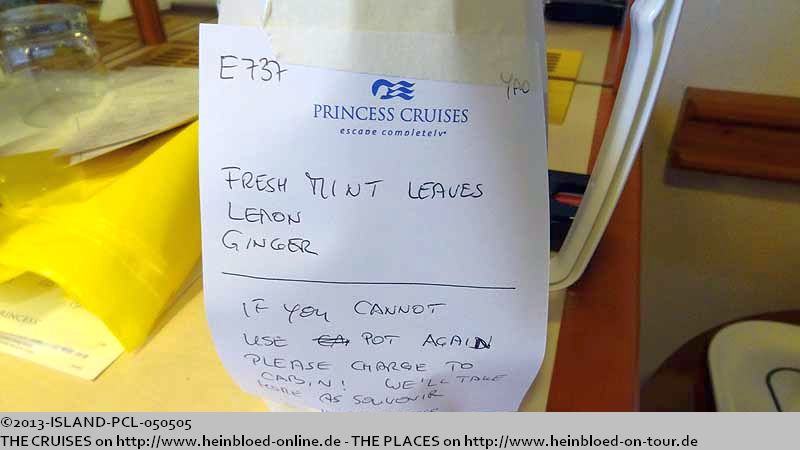 E737
YAO
PRINCESS CRUISES
escape completely®
FRESH MINT LEAVES
LEMON
GINGER
IF YOU CANNOT
USE POT AGAIN
PLEASE CHARGE TO
CABIN! WE'LL TAKE
HOME AS SOUVENIR
PRINCESS
©2013-ISLAND-PCL-050505
THE CRUISES on http://www.heinbloed-online.de - THE PLACES on http://www.heinbloed-on-tour.de